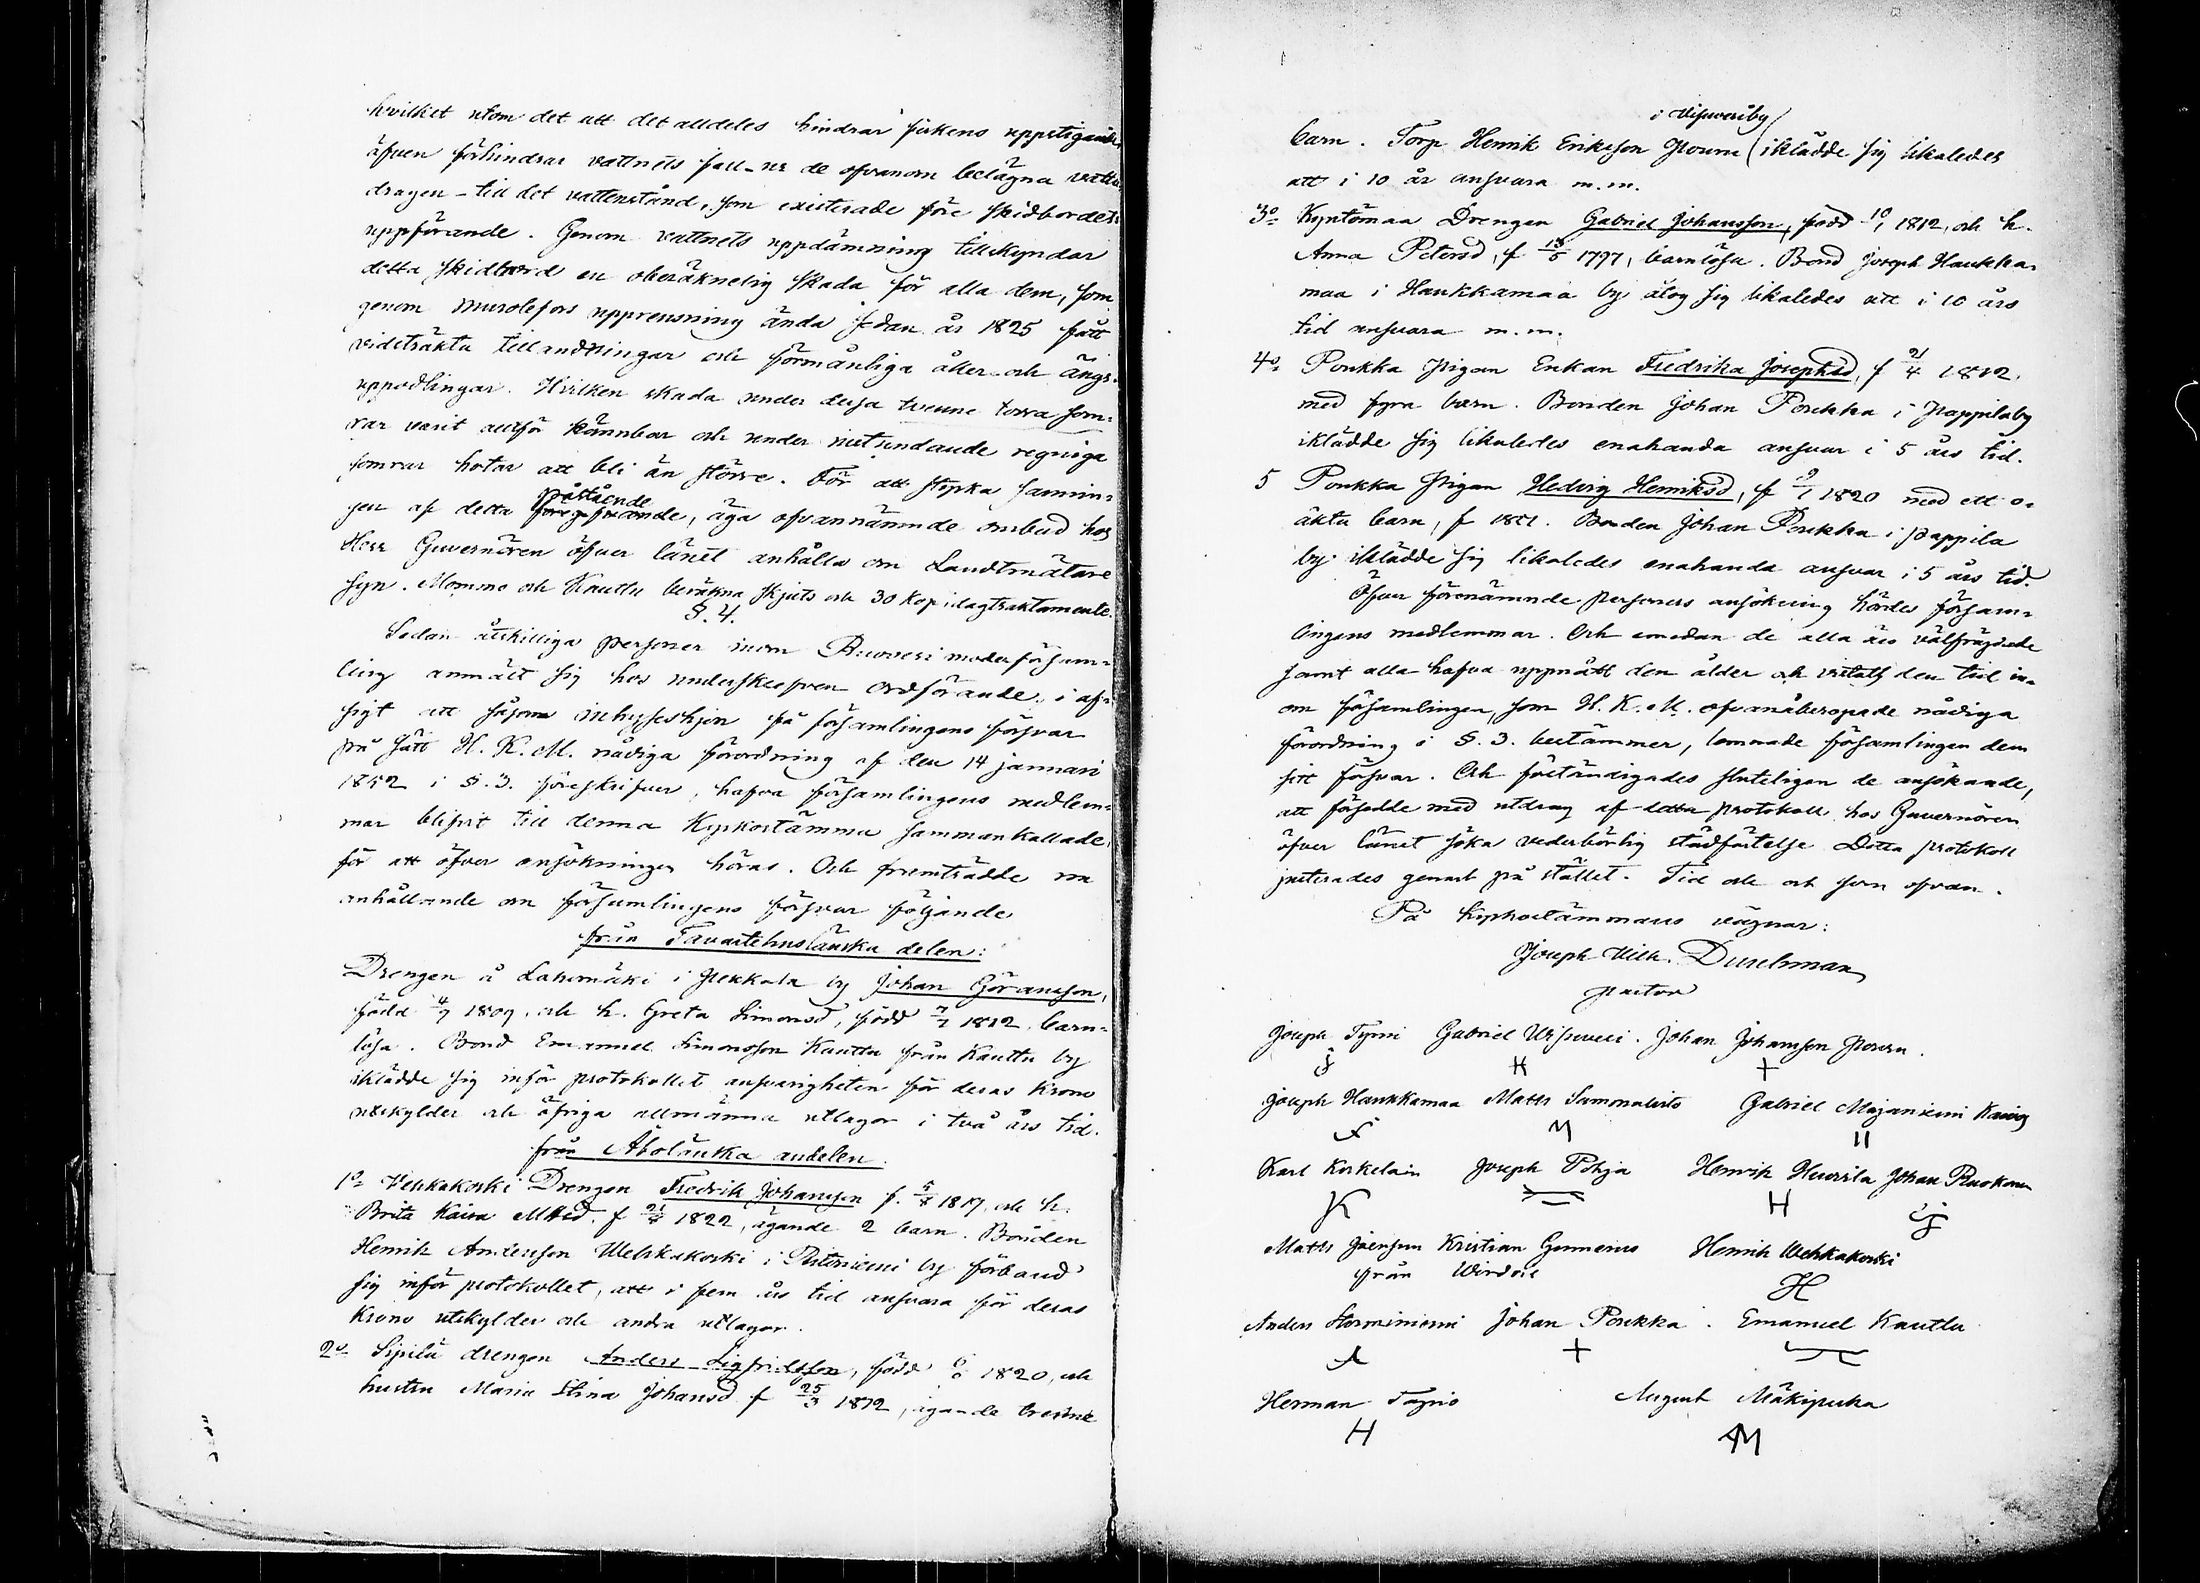 hvilket utom det att det alldeles hindrar fiskens uppstigande,
äfven förhindrar vattnets fall ur de ofvanom belägna vatten
dragen – till det vattenstånd, som existerade före skidbordets
uppförande. Genom vattnets uppdämning tillskyndar
detta skidbord en oberäknelig skada för alla dem, som
genom Murolefors upprensning ända sedan år 1825 fått
vidsträkta tillandningar och förmånliga åker och ängs-
uppodlingar. Hvilken skada under dessa tvenne torra som-
rar varit allt för kännbar och under instundande regniga
somrar hotar att bli än större. För att styrka sannin-
gen af detta påstående, äga ofvannämnde ombud hos
Herr Guvernören öfver länet anhålla om Landtmätare
syn. Mommo och Kauttu beräkna skjuts och 30 kop i dagtraktamente.
§. 4.
Sedan åtskilliga personer inom Ruovesi moderförsam-
ling anmält sig hos underskrefven ordförande, i af-
sigt att såsom inhyseshjon på församlingens försvar
på sätt H. K. M. nådiga förordning af den 14 januari
1852 i §. 3. föreskrifver, hafva församlingens medlem-
mar blifvit till denna Kyrkostämma sammankallade,
för att öfver ansökningen höras. Och framträdde nu
anhållande om församlingens försvar följande
från Tavastehuslänska delen:
Drengen å Lahomäki i Pekkala by Johan Göransson,
född 4/9 1809, och h. Greta Simonsd, född 7/7 1812, barn-
lösa. Bond Emanuel Simonsson Kauttu från Kauttu by
iklädde sig inför protokollet ansvarigheten för deras krono
utskylder och öfriga allmänna utlagor i två års tid.
från Åbolänska andelen.
1o Vehkakoski Drengen Fredrik Johansson f. 1817, och h.
Brita Kaisa Mtsd. f 1822, ägande 2 barn. Bonden
Henrik Andersson Wehkakoski i by förband
sig inför protokollet, att i fem års tid ansvara för deras
Krono utskylder och andra utlagor.
2o Sipilä drengen Anders Sigfridsson, född 1820, och
hustru Maria Stina Johansd f 25/3 1812, ägande trenne
i Visuvesi by
barn. Torp Henrik Eriksson iklädde sig likaledes
att i 10 år ansvara m.m.
3o Kyntömaa Drengen Gabriel Johansson, född 10/1 1812, och h.
Anna Petersd, f 13/5 1797, barnlösa. Bond Joseph Haukka-
maa i Haukkamaa by åtog sig likaledes att i 10 års
tid ansvara m.m.
4o Poukka Pigan Enkan Fredrika Josephsd, f 21/4 1812,
med fyra barn. Bonden Johan Poukka i Pappila by
iklädde sig likaledes enahanda ansvar i 5 års tid.
5 Poukka Pigan Hedvig Henriksd, f 9/1 1820 med ett o-
äkta barn, f 1851. Bonden Johan Poukka i Pappila
by iklädde sig likaledes enahanda ansvar i 5 års tid.
Öfver förenämnde personers ansökning hördes försam-
lingens medlemmar. Och emedan de alla äro välfrägdade
samt alla hafva uppnått den ålder och vistats den tid in-
om församlingen, som H. K. M. ofvanåberopade nådiga
förordning i §. 3. bestämmer, lemnade församlingen dem
sitt försvar. Och förständigades sluteligen de ansökande,
att försedde med utdrag af detta protokoll hos Guvernören
öfver länet söka vederbörlig stadfästelse. Detta protokoll
justerades genast på stället. Tid och ort som ofvan.
På kyrkostämmans vägnar:
Joseph Wilh. Durchman
pastor
Joseph Tyrni Gabriel Visuvesi. Johan Johansson
J H +
Joseph Haukkamaa Matts Gabriel Majaniemi
M
Karl Joseph Pohja Henrik Johan
K H J
Matts Kristian Gunnerus Henrik Wehkakoski
från H
Anders Johan Poukka. Emanuel Kauttu
A +
Herman August
H AM